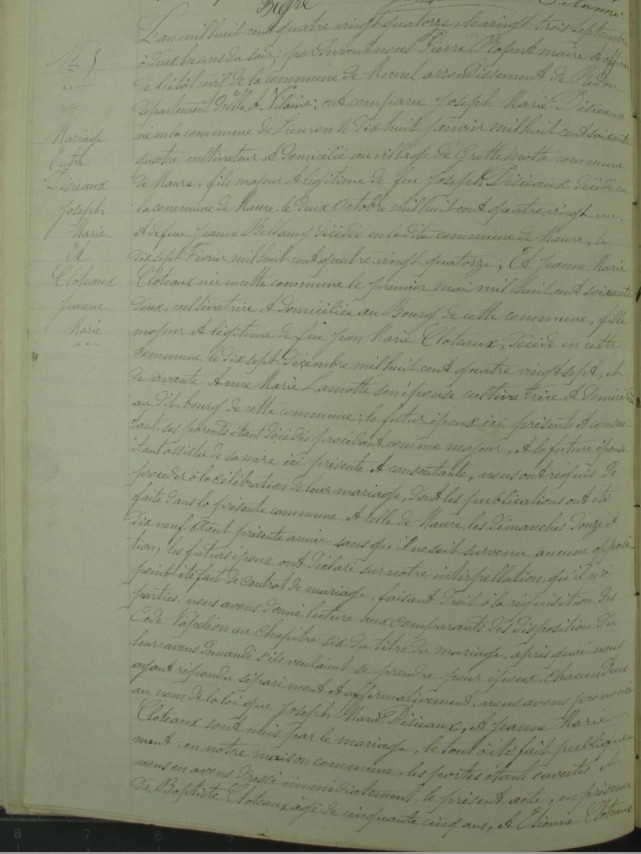 L'an mil huit cent quatre vingt quatorze, le vingt trois septembre
à deux heures du soir, par devant nous Pierre maire
de l'état civil de la commune de arrondissement de Redon
département d'Ille & Vilaine; ont comparu Joseph Marie Désieaux
né en la commune de Lieuron le dix huit janvier mil huit cent soixante
quatre cultivateur & domicilié au village de commune
de Maure, fils majeur & légitime de feu Joseph Désieaux décédé en
la commune de Maure, le deux Octobre mil huit cent quatre vingt un,
et de feue Jeanne Bellamy décédée en la dite commune de Maure, le
dix sept Février mil huit cent quatre vingt quatorze; Et Jeanne Marie
Cloteaux née en cette commune le premier mai mil huit cent soixante
deux, cultivatrice & domiciliée au Bourg de cette commune, fille
majeur & légitime de feu Jean Marie Cloteaux, décédé en cette
commune le dix sept Décembre mil huit cent quatre vingt sept, et
de vivante Anne Marie Lamotte son épouse cultivatrice & domiciliée
au dit bourg de cette commune; le futur époux ici présente & consen-
tant ses parents étant décédés procédant comme majeur, & la future épouse
étant assistée de sa mère ici présente & consentante, nous ont requis de
procéder à la célébration de leur mariage, dont les publications ont été
faite dans la présente commune & celle de Maure, les dimanches douze &
dix neuf Août présente année sans qu'il ne soit survenu aucune opposi-
tion, les futurs époux ont déclaré sur notre interpellation qu'il n'a
point été fait de contrat de mariage, faisant droit à la réquisition des
parties nous avons donné lecture aux comparants des disposition du
Code Napoléon au chapitre six du titre du mariage, après quoi nous
leur avons demandé s'ils veulaient se prendre pour époux chacun d'eux
ayant répondu séparément & affirmativement nous avons prononcé
au nom de la loi que Joseph Marie Désieaux, & Jeanne Marie
Cloteaux sont unis par le mariage, le tout a été fait publique-
ment en notre maison commune, les portes étant ouvertes et
nous en avons dressé immédiatement le présent acte, en présence
de Baptiste Cloteaux agé de cinquante cinq ans, & Etienne Cloteaux
No 5
Mariage
Entre
Désieaux
Joseph
Marie
Et
Cloteaux
Jeanne
Marie